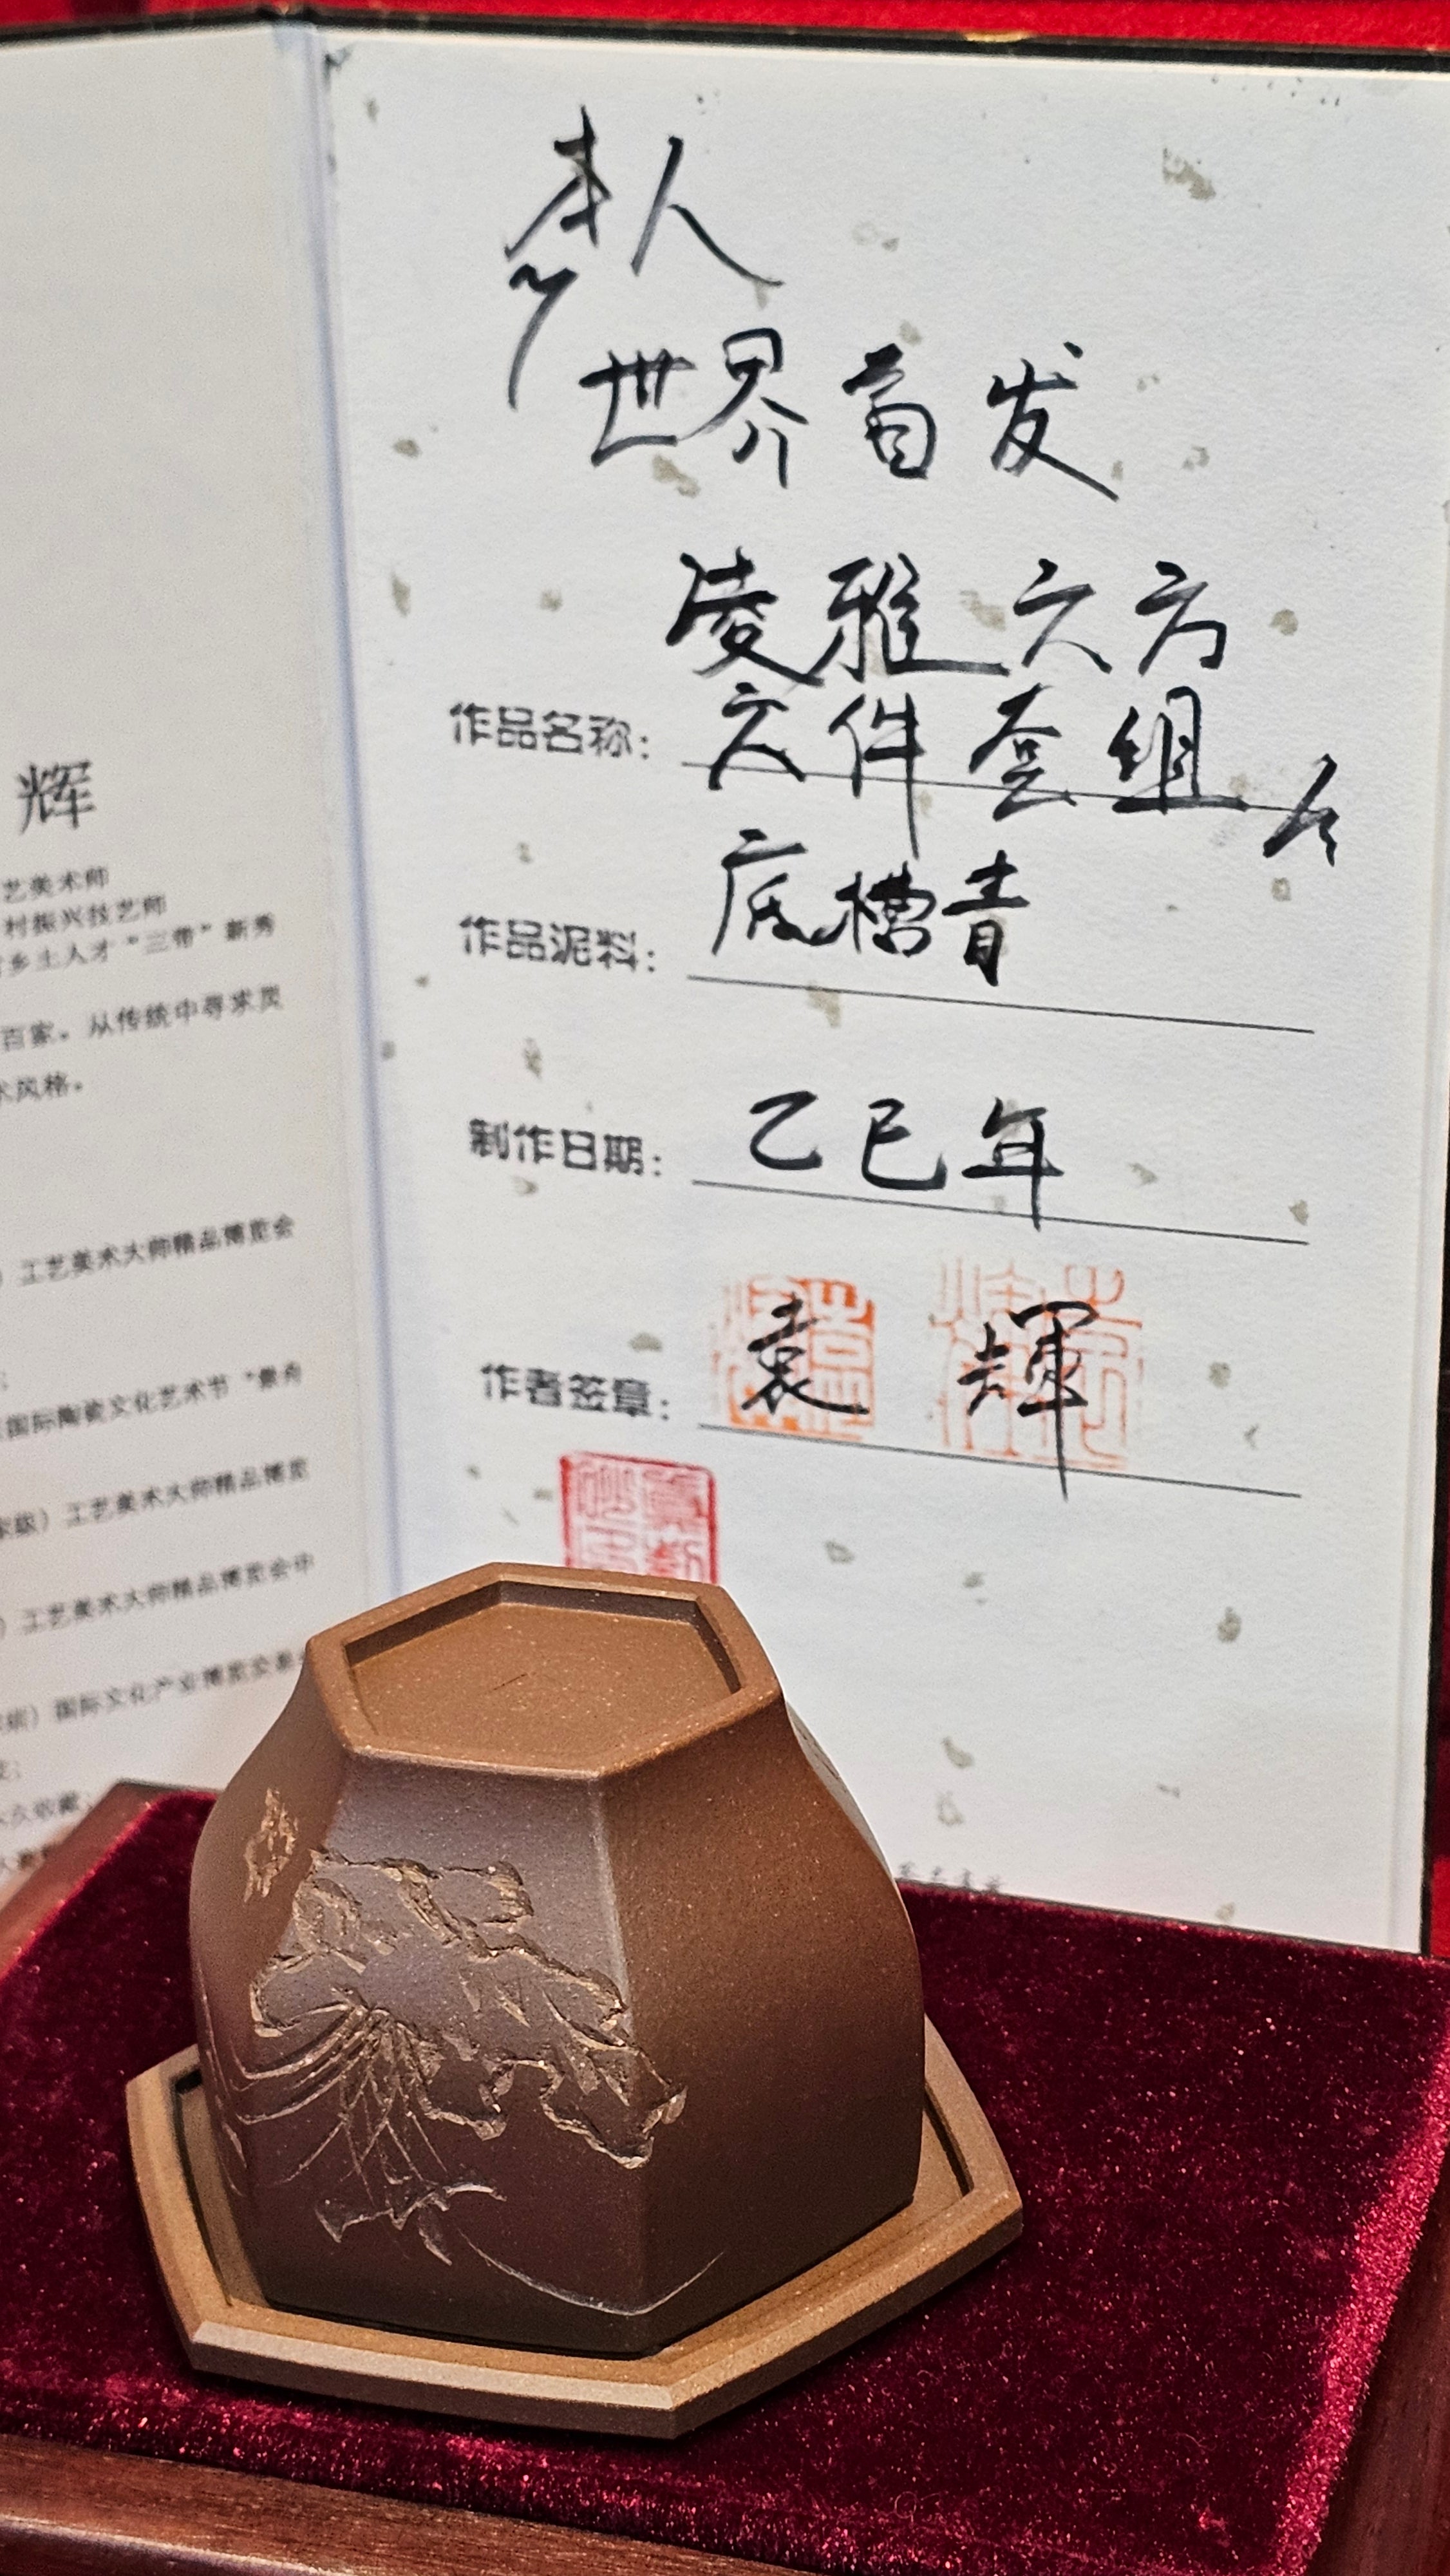 辉
艺美术师
村振兴技艺师
乡土人才“三带”新秀
百家。从传统中寻求灵
术风格。
工艺美术大师精品博览会
国际陶瓷文化艺术节“景舟
工艺美术大师精品博览
工艺美术大师精品博览会中
国际文化产业博览交易会
永久收藏
本人
世界首发
凌雅六方
作品名称：六件套组
作品泥料：底槽青
制作日期：乙巳年
作者签章：袁輝